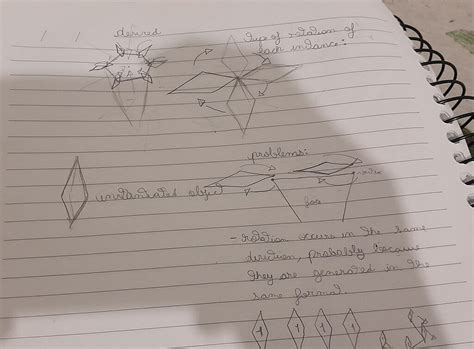 desired
type of rotation of
each instance:
problems:
unstantiated object
- rotation occurs in the same
direction, probably because
they are generated in the
same format.
1 1 1 1